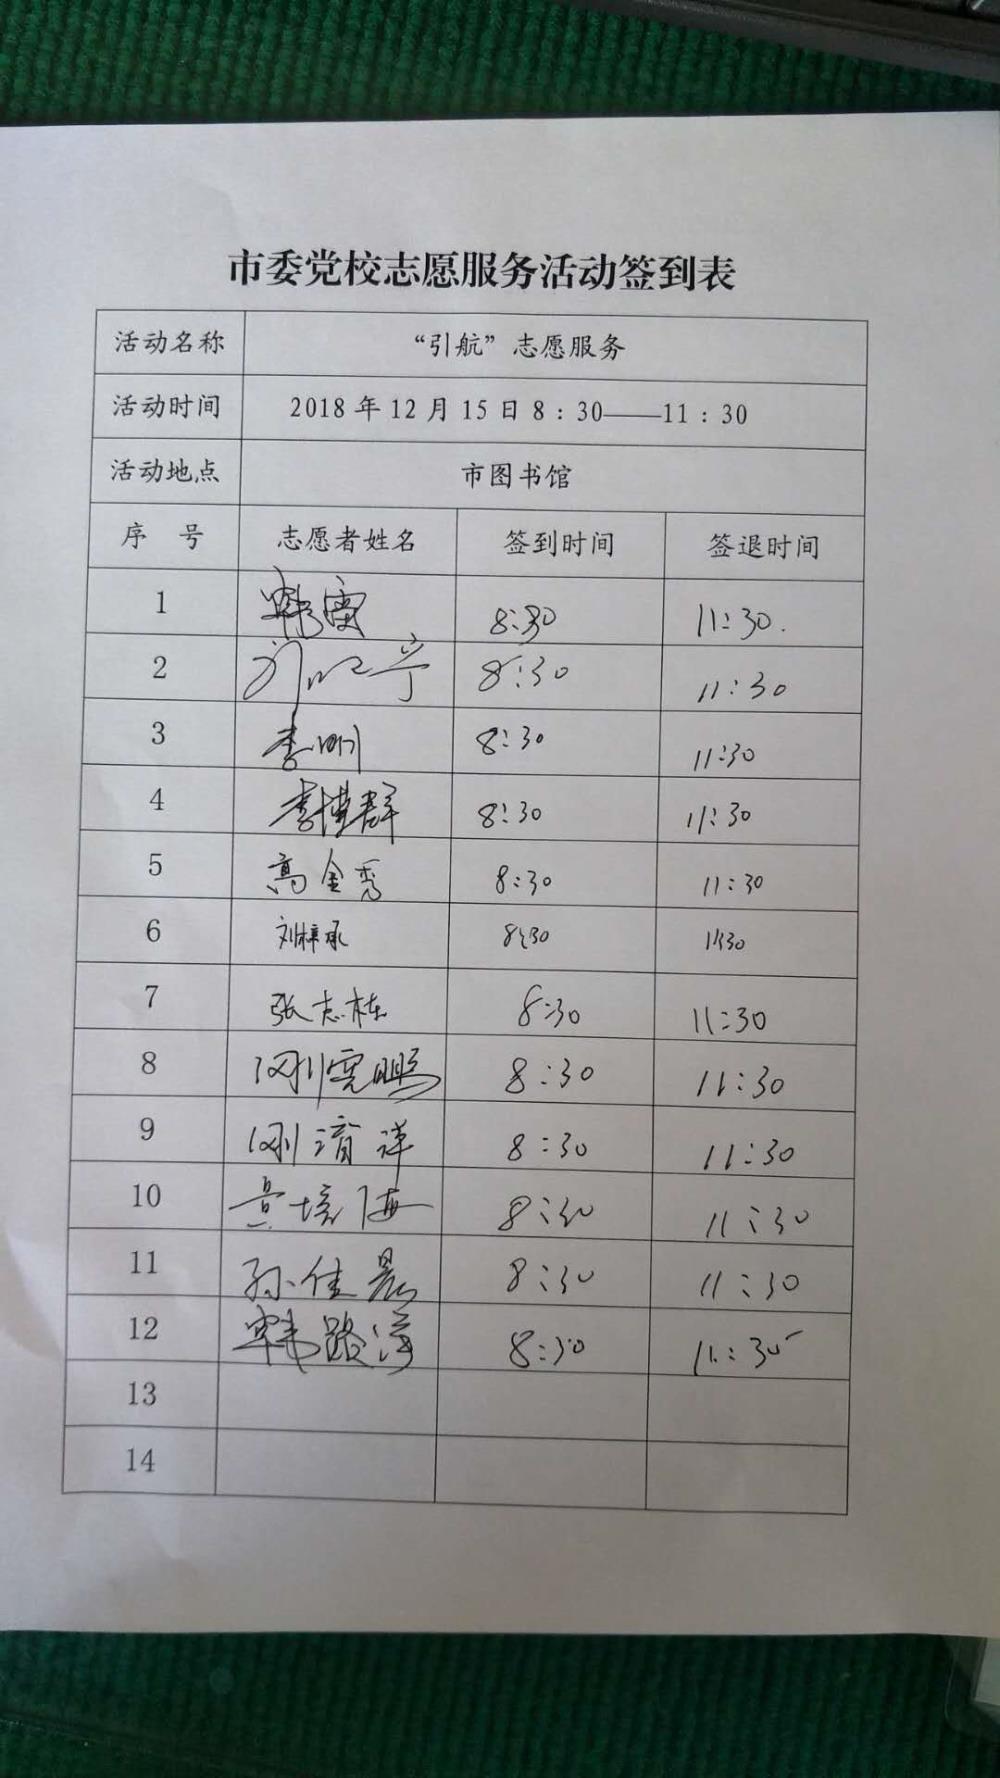 市委党校志愿服务活动签到表
活动名称 “引航”志愿服务
活动时间 2018年12月15日8:30——11:30
活动地点 市图书馆
序 号 志愿者姓名 签到时间 签退时间
1 韩雷 8:30 11:30.
2 8:30 11:30
3 李明 8:30 11:30
4 李博群 8:30 11:30
5 高金秀 8:30 11:30
6 刘梓承 8:30 11:30
7 张志栋 8:30 11:30
8 8:30 11:30
9 刚淯洋 8:30 11:30
10 8:30 11:30
11 孙佳晨 8:30 11:30
12 韩路萍 8:30 11:30
13
14